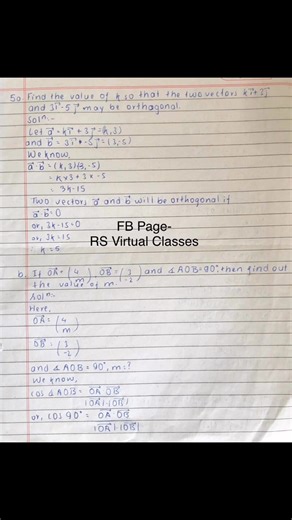 5a. Find the value of k so that the two vectors ki⃗+3j⃗
and 3i⃗-5j⃗ may be orthogonal.
Solⁿ:-
Let a⃗ = ki⃗ + 3j⃗ = (k, 3)
and b⃗ = 3i⃗ - 5j⃗ = (3,-5)
We know,
a⃗·b⃗ = (k, 3)(3,-5)
= k×3+3×-5
= 3k-15
Two vectors a⃗ and b⃗ will be orthogonal if
a⃗·b⃗=0
or, 3k-15=0
or, 3k=15
∴ k=5
FB Page-
RS Virtual Classes
b. If OA⃗ = (4 m), OB⃗ = (3 -2) and ∠AOB=90°, then find out
the value of m.
Solⁿ:-
Here,
OA⃗ = (4 m)
OB⃗ = (3 -2)
and ∠AOB = 90°, m=?
We know,
cos ∠AOB = OA⃗·OB⃗
|OA⃗|·|OB⃗|
or, cos 90° = OA⃗·OB⃗
|OA⃗|·|OB⃗|